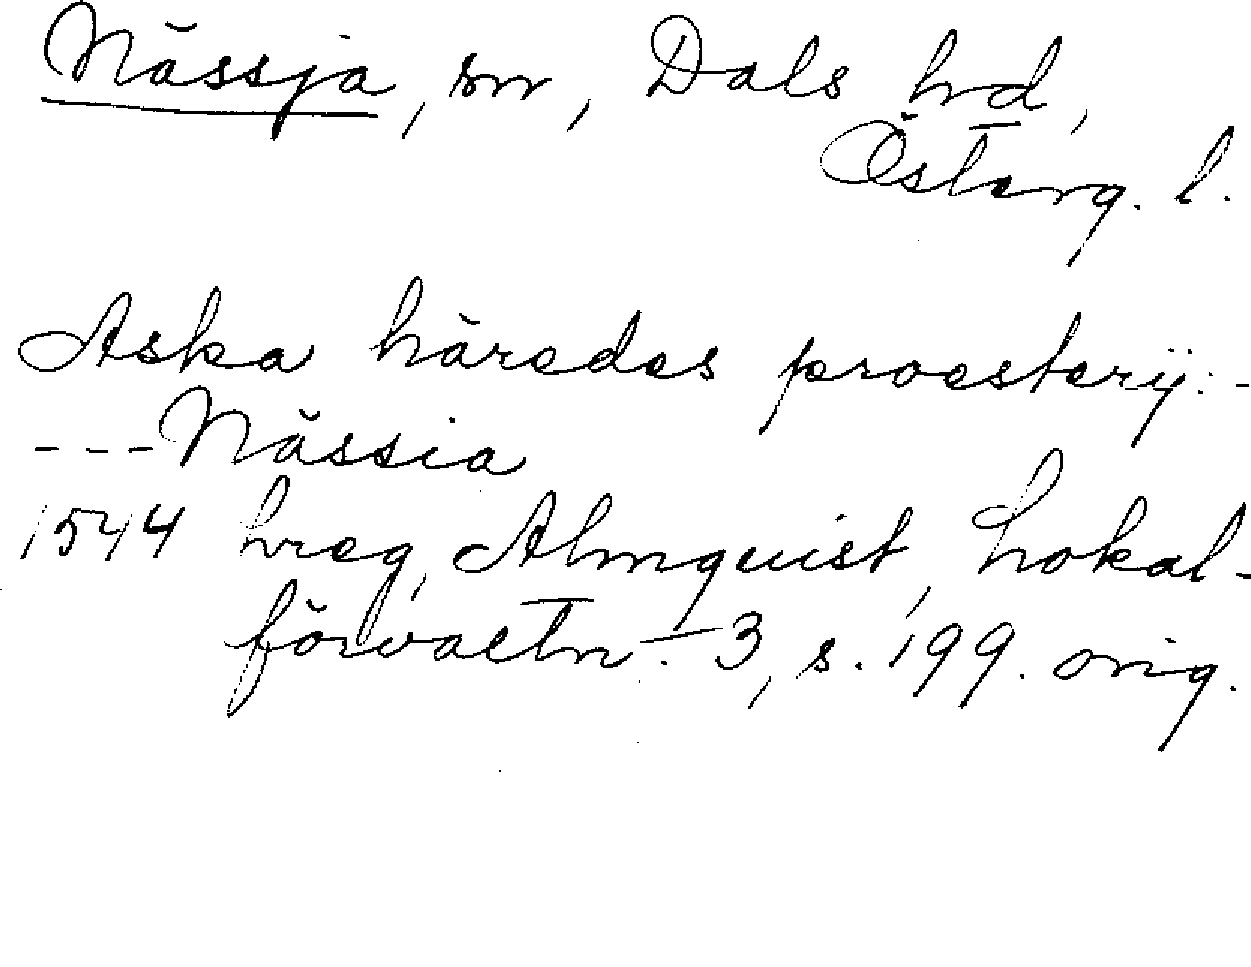 Nässja, sn, Dals hd,
Österg. l.
Aska häredes proesterij: -
- - - Nässia
1544 hreg, Almquist, Lokal-
förvaltn. 3, s. 199. orig.